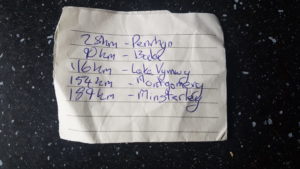 25km - Penrhyn
90km - Beddg
116km - Lake Vyrnwy
154km - Montgomery
189km - Minsterley